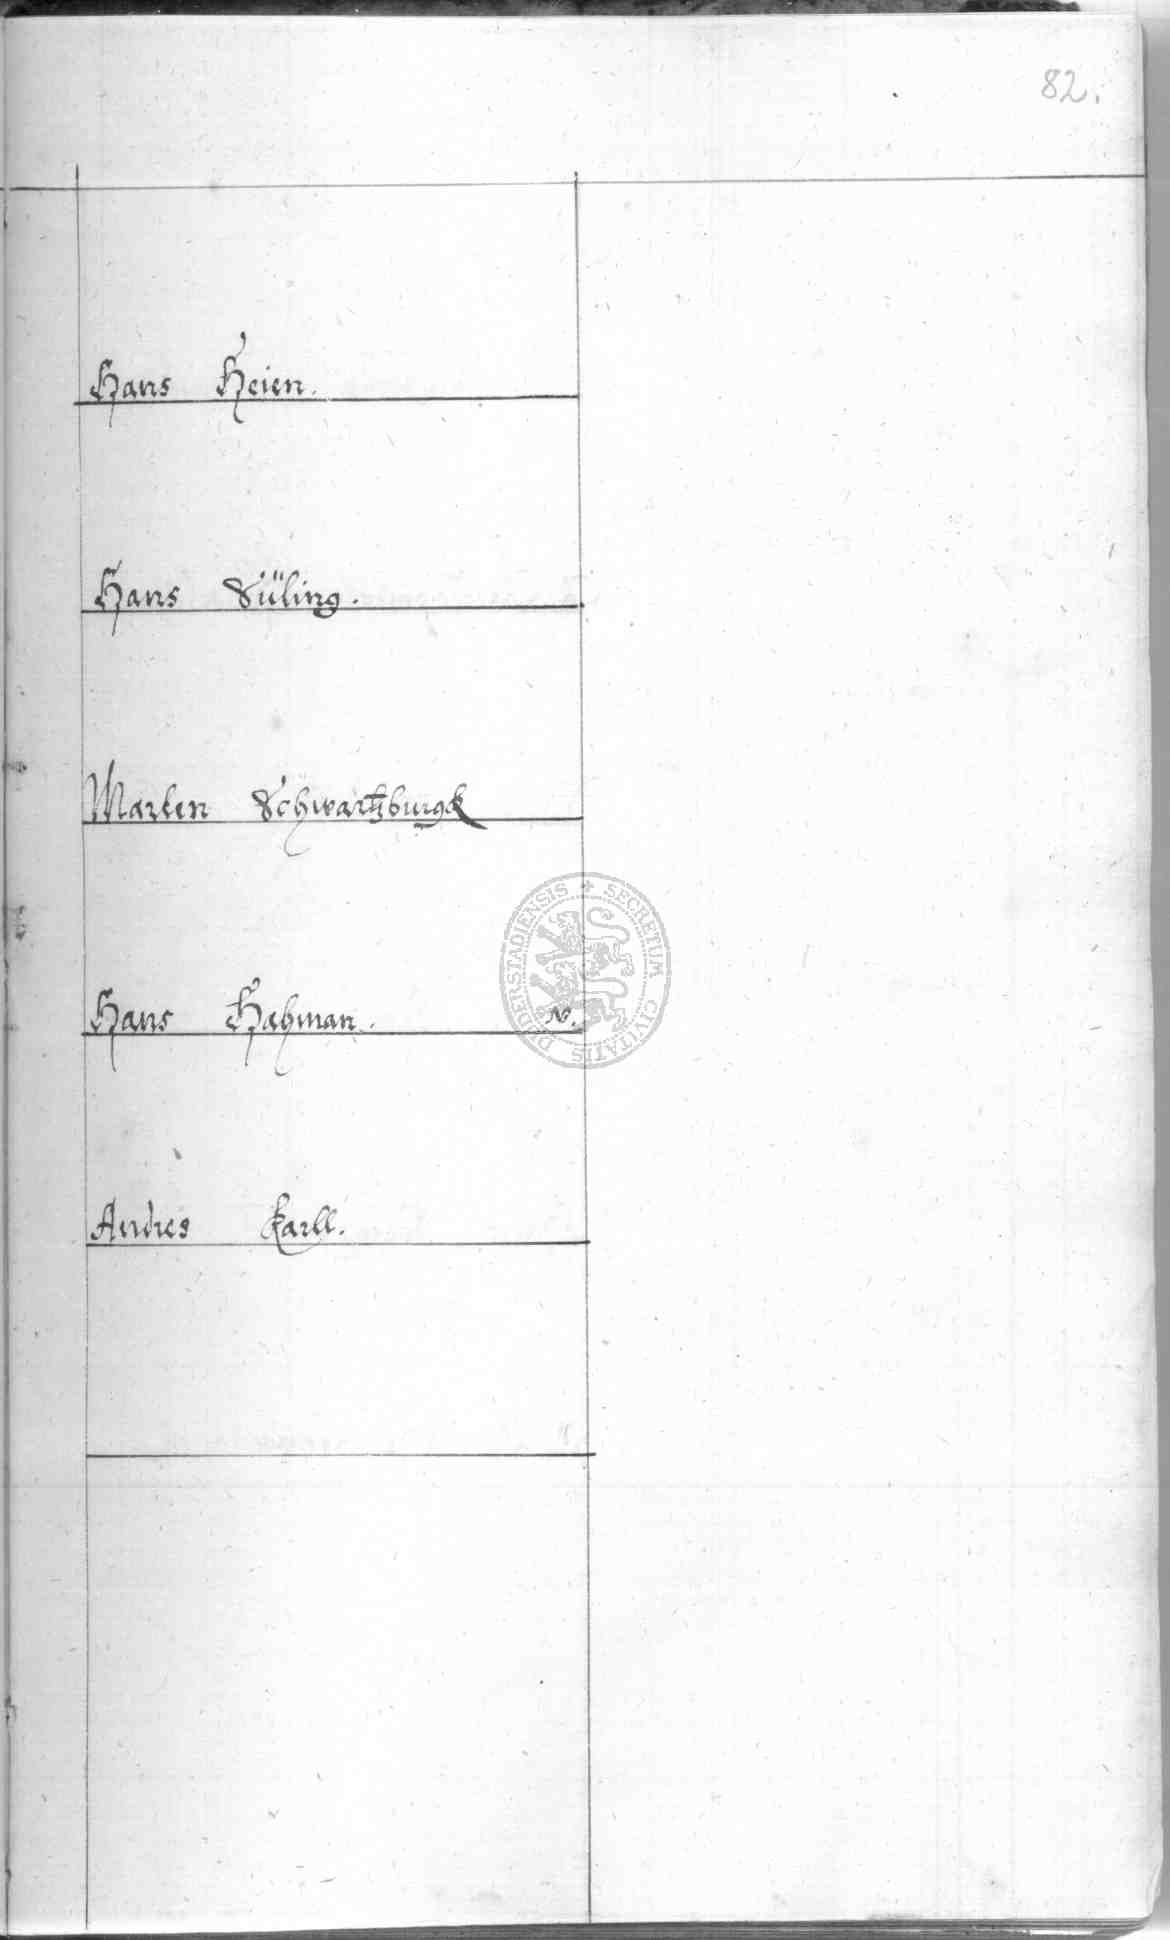 82.
Hans Heien.
Hans Süling.
Marten Schwartzburgck
Hans Hahman. N.
Andres Karll.
SECRETUM CIVITATIS DUDERSTADIENSIS